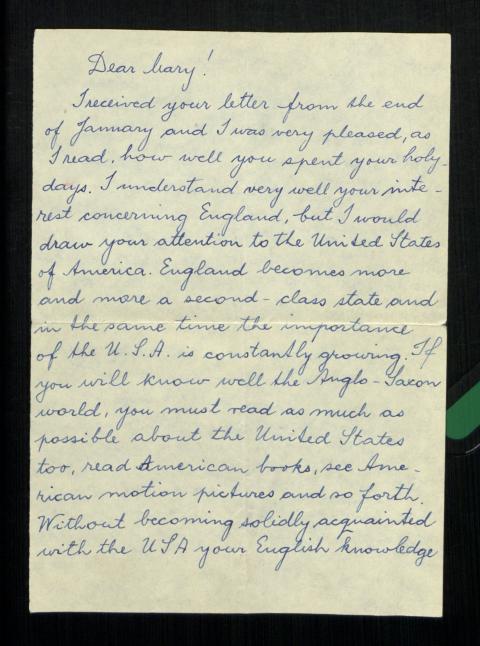 Dear Mary!
I received your letter from the end
of January and I was very pleased, as
I read, how well you spent your holy-
days. I understand very well your inte-
rest concerning England, but I would
draw your attention to the United States
of America. England becomes more
and more a second-class state and
in the same time the importance
of the U.S.A. is constantly growing. If
you will know well the Anglo-Saxon
world, you must read as much as
possible about the United States
too, read American books, see Ame-
rican motion pictures and so forth.
Without becoming solidly acquainted
with the USA your English knowledge